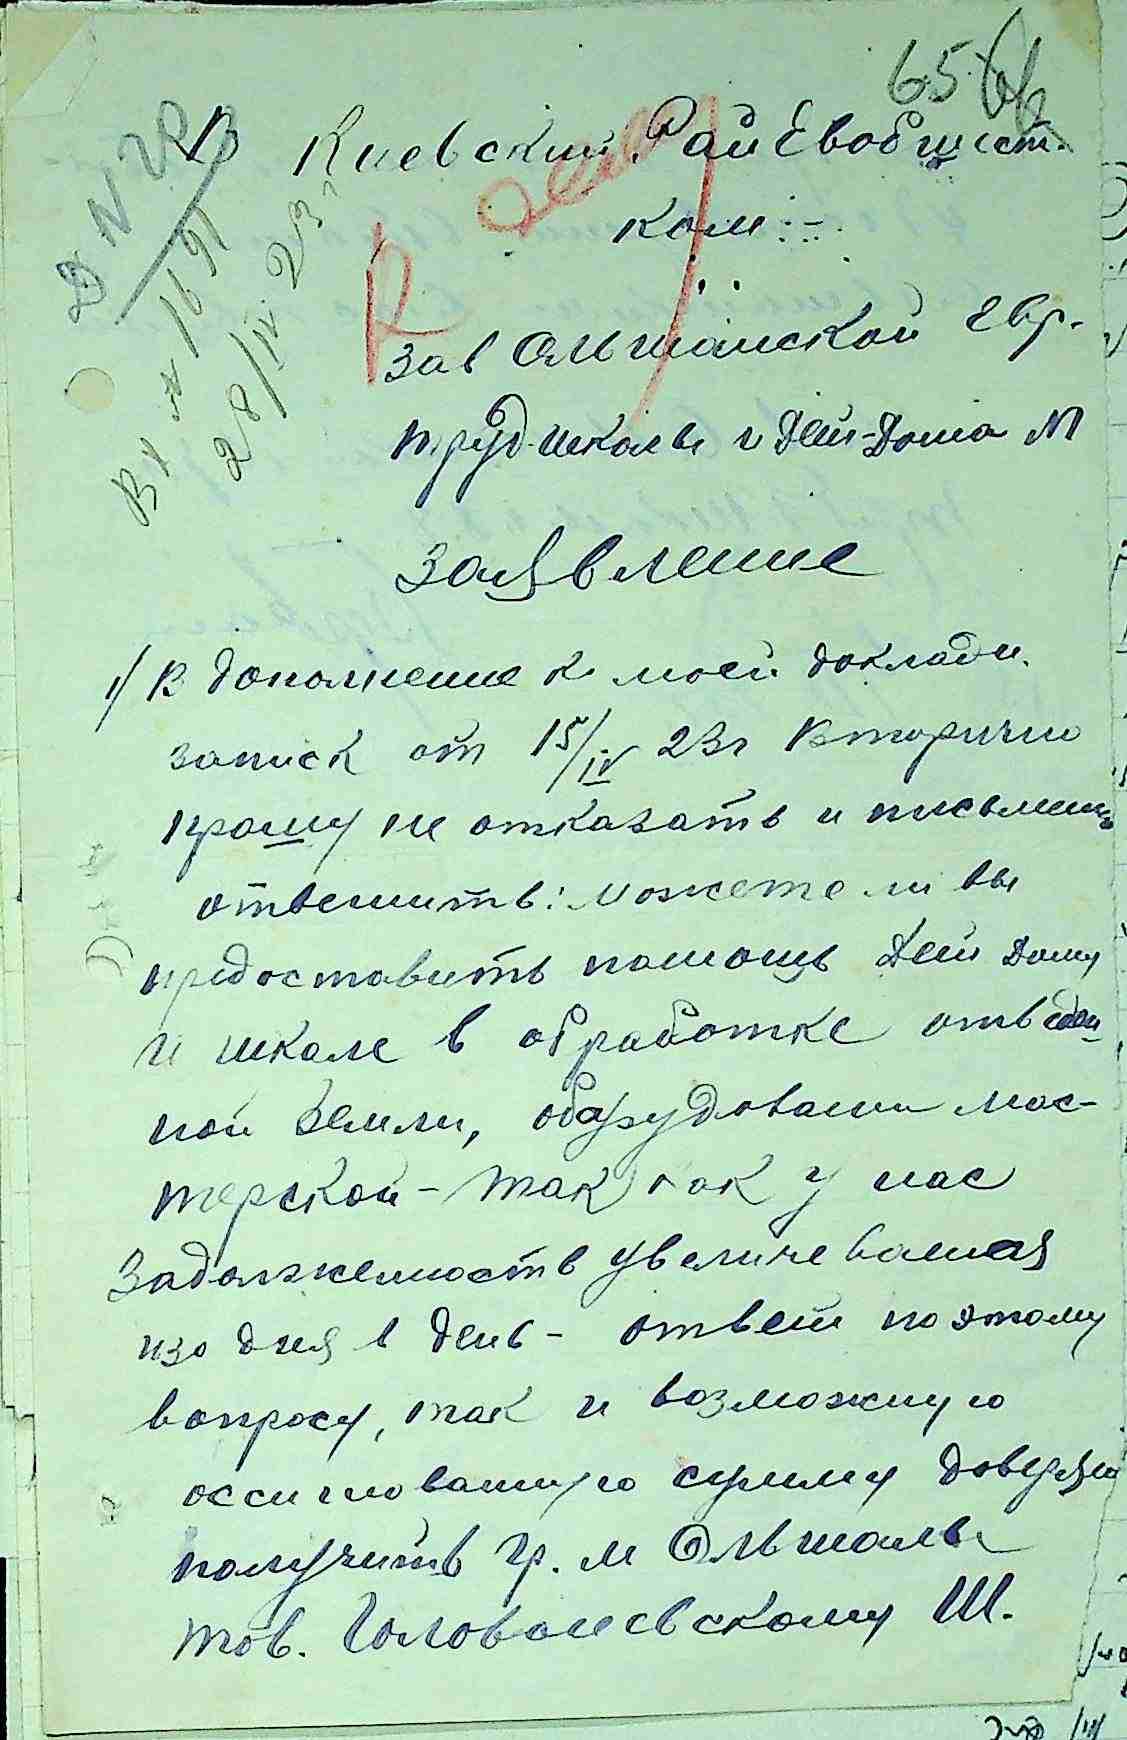 65
В Киевский РайЕвобщест.
ком
Вх № 1691
28/IV 23
зав Ольшанской Евр.
труд школы и Дет-Дома М
Заявление
1/ В дополнение к моей доклади.
записк от 15/IV 23г Вторично
прошу не отказать и письменно
ответить: можете ли вы
предоставить помощь Дет Дому
и школе в обработке отведен-
ной земли, оборудовании мас-
терской - так как у нас
Задолженность увеличеваетая
изо дня в день - ответ по этому
вопросу, так и возможную
оссигнованную сумму доверяем
получить гр. м Ольшаны
тов. Голованевскому Ш.